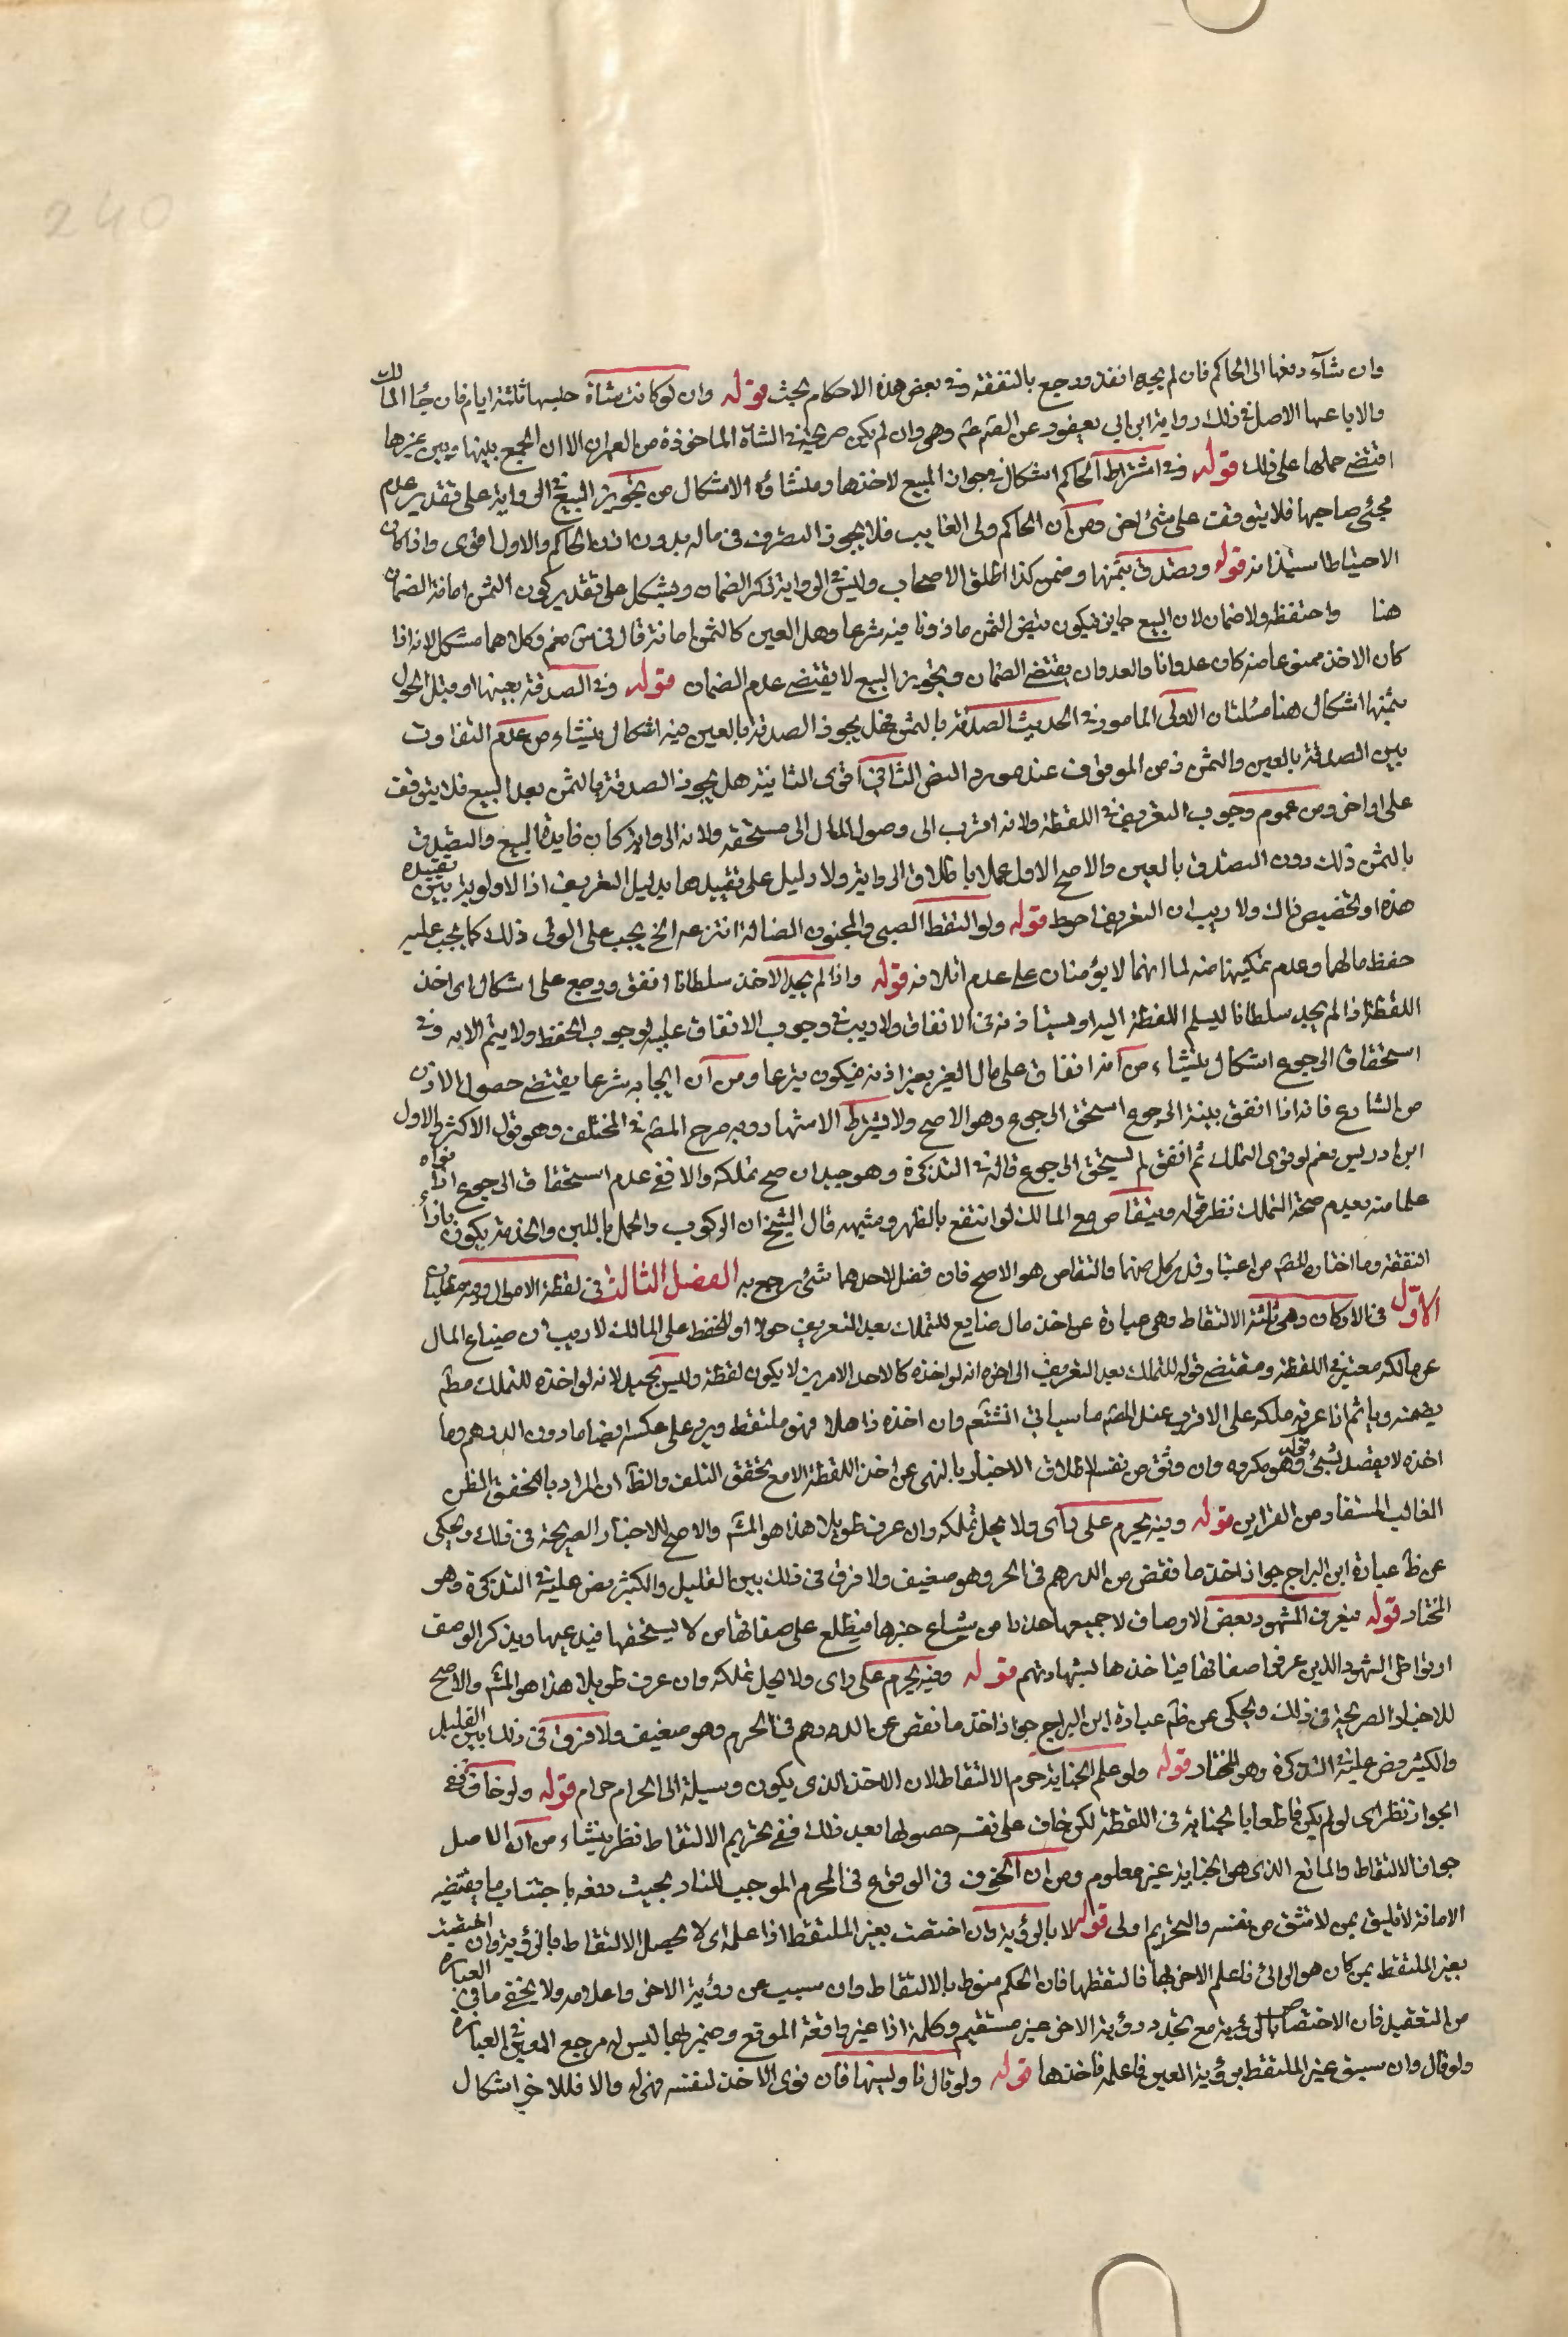 240
وان شآء دفعها الى الحاكم فان لم يجد انفق ورجع بالنفقة وفى بعض هذه الاحكام بحث قوله وان لو كانت شاة حبسها ثلثة ايام فان جُاالمالك
والا باعها الاصل فى ذلك رواية ابن ابى يعفور عن الصّم عم وهى وان لم يكن صريحة فى الشاة الماخوذة من العمران الا ان الجمع بينها وبين غيرها
اقتضى حملها على ذلك قوله وفى اشتراط الحاكم اشكال فى جواز البيع لاخذها ومنشاؤه الاشكال من تجويز البيع فى الرواية على تقدير عدم
مجئى صاحبها فلا يتوقف على شئ اخر ومن ان الحاكم ولى الغايب فلا يجوز التصرف فى ماله بدون اذن الحاكم والاول اقوى واذا كان
الاحتياط استيذانه قوله ويصدق بثمنها وضمن كذا اطلق الاصحاب وليس فى الرواية ذكر الضمان ويشكل على تقدير كون الثمن امانة الضمان
هنا واحتفظه ولا ضمان لان البيع جايز فيكون قبض الثمن ماذونا فيه شرعا وهل العين كالثمن امانة قال فى س نعم وكلاهما مشكل لانه اذا
كان الاخذ ممنوعا منه كان عدوانا والعدوان يقتضى الضمان وتجويز البيع لا يقتضى عدم الضمان قوله وفى الصدقة بعينها او قبل الحول
بثمنها اشكال هنا مسئلتان الاولى المامور فى الحديث الصدقة بالثمن فهل يجوز الصدقة بالعين فيه اشكال ينشاء من عدم التفاوت
بين الصدقة بالعين والثمن ومن الموقوف عند مورد النص الثانى اقوى الثانية هل يجوز الصدقة بالثمن بعد البيع فلا يتوقف
على اواخر ومن عموم وجوب التعريف فى اللقطة ولانه اقرب الى وصول المال الى مستحقه ولانه الرواية كان فايدة البيع والتصدق
بالثمن ذلك دون التصدق بالعين والاصح الاول عملا باطلاق الرواية ولا دليل على تقييدها بدليل التعريف اذ الاولوية بين تقييده
هذه او تخصيص ذاك ولا ريب ان التعريف احوط قوله ولو التقط الصبى والمجنون الضالة انتزعه الخ يجب على الولى ذلك كما يجب عليه
حفظ مالهما وعدم تمكينهما منه لما انهما لا يؤمنان على عدم اتلافه قوله واذا لم يجد الاخذ سلطانا انفق ورجع على اشكال اى اخذ
اللقطة اذا لم يجد سلطانا ليسلم اللقطة اليه او يستاذنه فى الانفاق ولا ريب فى وجوب الانفاق عليه لوجوب الحفظ ولا يتم الا به وفى
استحقاق الرجوع اشكال ينشاء من انه انفاق على مال الغير بغير اذنه فيكون تبرعا ومن ان ايجابه شرعا يقتضى حصول الاذن
من الشارع فانه اذا انفق بنية الرجوع استحق الرجوع وهو الاصح ولا يشترط الاشهاد وبه صرح المصّ فى المختلف وهو قول الاكثر والاول
ابن ادريس نعم لو نوى التملك ثم انفق لم يستحق الرجوع قاله فى التذكرة وهو جيد ان صح تملكه والا ففى عدم استحقاق الرجوع اذا نواه
علما منه بعدم صحة التملك نظر قوله ويتقاص مع المالك لو انتفع بالظهر وشبهه قال الشيخ ان الركوب والحمل واللبن والخدمة يكون بازاء
النفقة وما اختاره المصّ من اعتبار قدر كل منهما والتقاص هو الاصح فان فضل لاحدهما شئ رجع به الفصل الثالث فى لقطة الاموال وفيه مطلبان
الاوّل فى الاركان وهى ثلثة الالتقاط وهى عبارة عن اخذ مال ضايع للتملك بعد التعريف حولا او للحفظ على المالك لا ريب ان ضياع المال
عن مالكه معتبر فى اللقطة ومقتضى قوله للتملك بعد التعريف الى اخره انه لو اخذه كالاحد الامرين لا يكون لقطة وليس بجيد لانه لو اخذه للتملك مطم
يضمنه وياثم اذا عرفه ملكه على الاقرب عند المصّ ما سياتى انشتعم وان اخذه ذاهلا فهو ملتقط ويرد على عكسه ايضا ما دون الدرهم وما
اخذه لا بقصد شئ قوله وهو مكروه وان وثق من نفسه لاطلاق الاخبار بالنهى عن اخذ اللقطة الا مع تحقق التلف والظّ ان المراد بالتحقق الظن
الغالب المستفاد من القراين قوله وفيه يحرم على راى ولا يحل تملكه وان عرف طويلا هذا هو المشّ والاصح للاخبار الصريحة فى ذلك ويحكى
عن ظ عبارة ابن البراج جواز اخذ ما نقص من الدرهم فى الحرم وهو ضعيف ولا فرق فى ذلك بين القليل والكثير نص عليه فى التذكرة وهو
المختار قوله فيعرف المشهود بعض الاوصاف لا جميعها حذرا من شياع خبرها فيطلع على صفاتها من لا يستحقها فيدعيها ويذكر الوصف
او تواطى الشهود الذين عرفوا صفاتها فياخذها بشهادتهم قوله وفيه يحرم على راى ولا يحل تملكه وان عرف طويلا هذا هو المشّ والاصح
للاخبار الصريحة فى ذلك ويحكى عن ظم عبارة ابن البراج جواز اخذ ما نقص عن الدرهم فى الحرم وهو ضعيف ولا فرق فى ذلك بين القليل
والكثير نص عليه فى التذكرة وهو المختار قوله ولو علم الخيانة حرم الالتقاط لان الاخذ الذى يكون وسيلة الى الحرام حرام قوله ولو خاف ففى
الجواز نظر اى لو لم يكن قاطعا بالخيانة فى اللقطة لكن خاف على نفسه حصولها بعد ذلك ففى تحريم الالتقاط نظر ينشاء من ان الاصل
جواز الالتقاط والمانع الذى هو الخيانة غير معلوم ومن ان الخوف فى الوقوع فى المحرم الموجب للنار بحيث دفعه باجتناب ما يقتضيه
الامانة لا يليق بمن لا يثق من نفسه والتحريم اولى قوله لا بالرؤية وان اختصت بغير الملتقط اذا علمه اى لا يحصل الالتقاط بالرؤية وان اختصت
بغير الملتقط بمن كان هو الرائى فاعلم الاخر بها فالتقطها فان الحكم منوط بالالتقاط وان سبب عن رؤية الاخر واعلامه ولا يخفى ما فى العبارة
من التعقيد فان الاختصاص بالرؤية مع تجدد رؤية الاخر غير مستقيم وكلمة اذا غير واقعة الموقع وضمير بها ليس له مرجع الموى فى العبارة
ولو قال وان سبق غير الملتقط برؤية العين فاعلمه فاخذها قوله ولو قال ناولينها فان نوى الاخذ لنفسه فهى له والا فللاخر اشكال